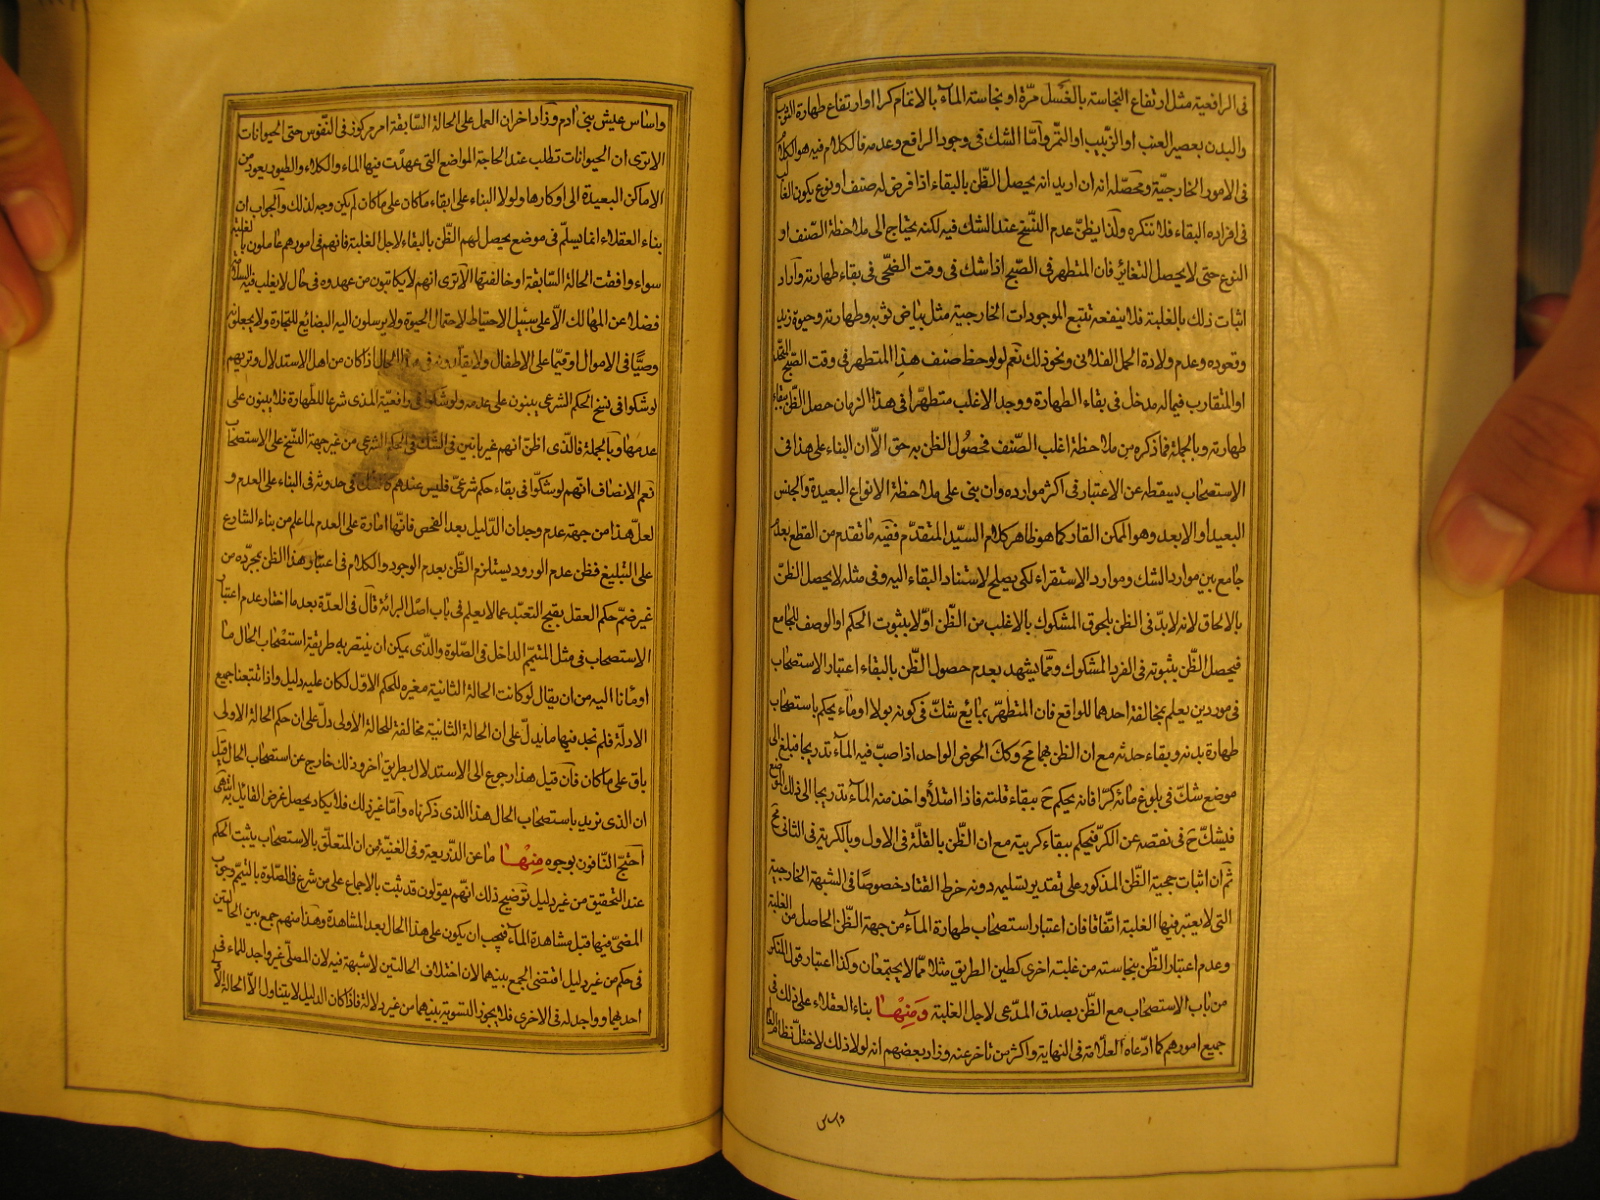 فى الرافعية مثل ارتفاع النجاسة بالغسل مرّة او نجاسة المآء بالاتمام كرا او ارتفاع طهارة الثوب
والبدن بعصير العنب او الزبيب او التمر وأمّا الشك فى وجود الرافع وعدمه فالكلام فيه هو الكلام
فى الامور الخارجيّة ومحصّله انه ان اريد انه يحصل الظّن بالبقاء اذا فرض له صنف او نوع يكون الغالب
فى افراده البقاء فلا ننكره ولذا يظنّ عدم النّسخ عند الشك فيه لكنه يحتاج الى ملاحظة الصّنف او
النوع حتى لا يحصل التغائر فان المتطهر فى الصّبح اذا شك فى وقت الضّحى فى بقاء طهارته وآراد
اثبات ذلك بالغلبة فلا ينفعه تتبع الموجودات الخارجية مثل بياض ثوبه وطهارته وحيوة زيد
وقعوده وعدم ولادة الحمل الفلانى ونحو ذلك نعم لو لوحظ صنف هذا المتطهر فى وقت الصّبح المتحد
او المتقارب فيما له مدخل فى بقاء الطهارة ووجد الاغلب متطهرّا فى هذا الزمان حصل الظّن ببقاء
طهارته وبالجملة فما ذكره من ملاحظة اغلب الصّنف فحصُول الظن به حق الّا ان البناء على هذا فى
الاستصحاب يسقطه عن الاعتبار فى اكثر موارده وان بنى على ملاحظة الانواع البعيدة والجنس
البعيد او الابعد وهو الممكن القار كما هو ظاهر كلام السيّد المتقدّم ففيه ما تقدم من القطع بعدم
جامع بين موارد الشك وموارد الاستقراء لكى يصلح لاستناد البقاء اليه وفى مثله لا يحصل الظنّ
بالالحاق لانه لا بدّ فى الظن بلحوق المشكوك بالاغلب من الظّن اوّلا بثبوت الحكم او الوصف للجامع
فيحصل الظّن بثبوته فى الفرد المشكوك وممّا يشهد بعدم حصول الظّن بالبقاء اعتبار الاستصحاب
فى موردين يعلم بمخالفة احدهما للواقع فان المتطهرّ بمايع شكّ فى كونه بولا او ماء يحكم باستصحاب
طهارة بدنه وبقاء حدثه مع ان الظن بهما مح وكك الحوض الواحد اذا صبّ فيه المآء تدريجا فبلغ الى
موضع شكّ فى بلوغ مائه كرّا فانه يحكم ح ببقاء قلته فاذا امتلأ واخذ منه المآء تدريجا الى ذلك الموضع
فيشكّ ح فى نقصه عن الكرّ فيحكم ببقاء كريته مع ان الظّن بالقلّة فى الاول وبالكرية فى الثانى مح
ثم ان اثبات حجية الظّن المذكور على تقدير تسليمه دونه خرط القتاد خصوصًا فى الشبهة الخارجية
التى لا يعتبر فيها الغلبة اتّفاقا فان اعتبار استصحاب طهارة المآء من جهة الظّن الحاصل من الغلبة
وعدم اعتبار الظّن بنجاسته من غلبة اخرى كطين الطريق مثلا ممّا لا يجتمعان وكذا اعتبار قول المنكر
من باب الاستصحاب مع الظّن بصدق المدّعى لاجل الغلبة وَمِنْهٰا بناء العقلاء على ذلك فى
جميع امورهم كما ادّعاه العلّامة فى النهاية واكثر من تاخر عنه وزاد بعضهم انه لولا ذلك لاختلّ نظام العالم
واساس
واساس عيش بنى ادم وزاد اخر ان العمل على الحالة السّابقة امر مركوز فى النّفوس حتى الحيوانات
الا ترى ان الحيوانات تطلب عند الحاجة المواضع التى عهدت فيها الماء والكلاء والطيور يعود من
الاماكن البعيدة الى اوكارها ولولا البناء على ابقاء ما كان على ما كان لم يكن وجه لذلك والجواب ان
بناء العقلاء انما يسلّم فى موضع يحصل لهم الظّن بالبقاء لاجل الغلبة فانهم فى امورهم عاملون بالغلبة
سواء وافقت الحالة السّابقة او خالفتها الا ترى انهم لا يكاتبون من عهدوه فى حال لا يغلب فيه السلامة
فضلا عن المهالك الّا على سبيل الاحتياط لاحتمال الحيوة ولا يرسلون اليه البضائع للتجارة ولا يجعلونه
وصيًّا فى الاموال او قيّما على الاطفال ولا يقلّدونه فى هذا الحال اذا كان من اهل الاستدلال وتريهم
لو شكوا فى نسخ الحكم الشرعى يبنون على عدمه ولو شكوا فى رافعيّة المذى شرعا للطهارة فلا يبنون على
عدمها وبالجملة فالّذى اظنّ انهم غير بانين فى الشّك فى الحكم الشرعى من غير جهة النّسخ على الاستصحاب
نعم الانصاف انهم لو شكّوا فى بقاء حكم شرعىّ فليس عندهم كالشك فى حدوثه فى البناء على العدم و
لعلّ هذا من جهة عدم وجدان الدّليل بعد الفحص فانّها امارة على العدم لما علم من بناء الشارع
على التبليغ فظن عدم الورود يستلزم الظّن بعدم الوجود والكلام فى اعتبار هذا الظن بمجرّده من
غير ضمّ حكم العقل بقبح التعبّد بما لا يعلم فى باب اصل البرائة قال فى العدّة بعد ما اختار عدم اعتبار
الاستصحاب فى مثل المتيمّم الداخل فى الصّلوة والّذى يمكن ان ينتصر به طريقة استصْحاب الحال ما
اومانا اليه من ان يقال لو كانت الحالة الثانية مغيره للحكم الاوّل لكان عليه دليل واذا تتبعنا جميع
الادلّة فلم نجد فيها ما يدلّ على ان الحالة الثانية مخالفة للحالة الاولى دلّ على ان حكم الحالة الاولى
باق على ما كان فان قيل هذا رجوع الى الاستدلال بطريق اخر وذلك خارج عن استصحاب الحال قيل
ان الذى نريد باستصحاب الحال هذا الذى ذكرناه وامّا غير ذلك فلا يكاد يحصل غرض القائل به انتهى
احتج النّافون بوجوه مِنْهٰا ما عن الذّريعة وفى الغنية من ان المتعلّق بالاستصحاب يثبت الحكم
عند التحقيق من غير دليل توضيح ذلك انهم يقولون قد ثبت بالاجماع على من شرع فى الصّلوة بالتيمّم وجوب
المضىّ فيها قبل مشاهدة المآء فيجب ان يكون على هذا الحال بعد المشاهدة وهذا منهم جمع بين الحالتين
فى حكم من غير دليل اقتضى الجمع بينهما لان اختلاف الحالتين لا شبهة فيه لان المصلّى غير واجد للماء فى
احديهما وواجد له فى الاخرى فلا يجوز التسوية بينهما من غير دلالة فاذا كان الدليل لا يتناول الّا الحالة الاولى